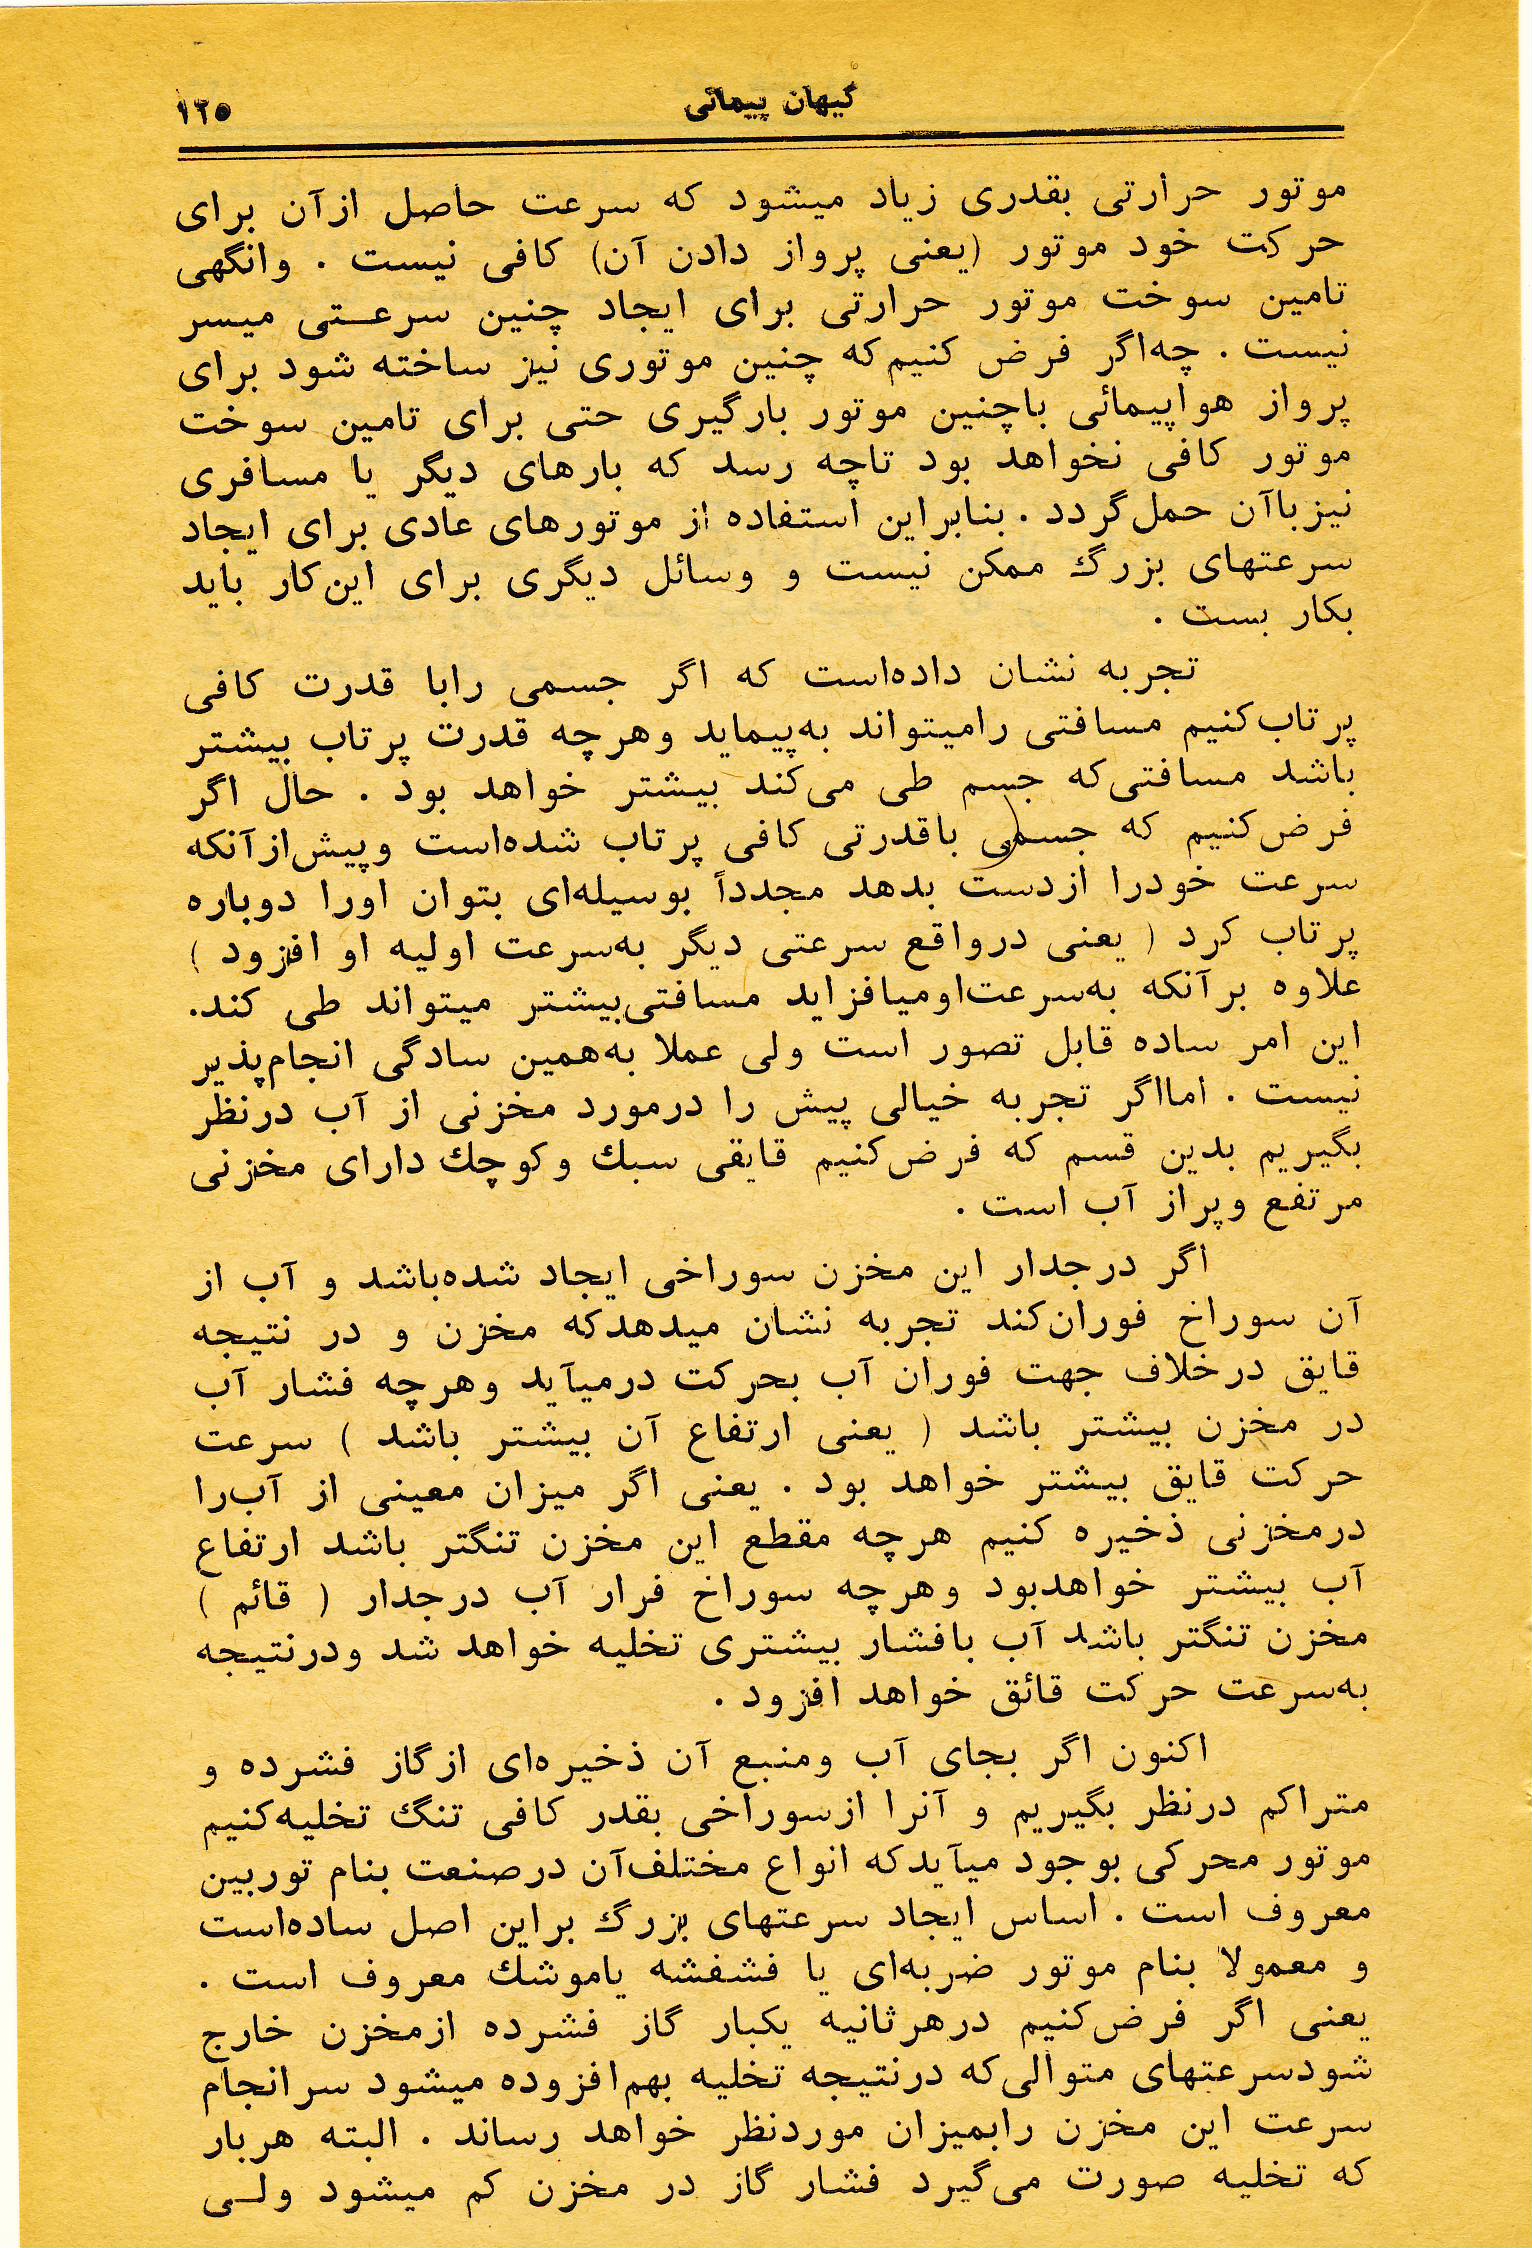 کیهان پیمائی
۱۲۵
موتور حرارتی بقدری زیاد میشود که سرعت حاصل ازآن برای
حرکت خود موتور (یعنی پرواز دادن آن) کافی نیست . وانگهی
تامین سوخت موتور حرارتی برای ایجاد چنین سرعـتی میسر
نیست . چه‌اگر فرض کنیم‌که چنین موتوری نیز ساخته شود برای
پرواز هواپیمائی باچنین موتور بارگیری حتی برای تامین سوخت
موتور کافی نخواهد بود تاچه رسد که بارهای دیگر یا مسافری
نیزباآن حمل‌گردد . بنابراین استفاده از موتورهای عادی برای ایجاد
سرعتهای بزرگ ممکن نیست و وسائل دیگری برای این‌کار باید
بکار بست .
تجربه نشان داده‌است که اگر جسمی رابا قدرت کافی
پرتاب‌کنیم مسافتی رامیتواند به‌پیماید وهرچه قدرت پرتاب بیشتر
باشد مسافتی‌که جسم طی می‌کند بیشتر خواهد بود . حال اگر
فرض‌کنیم که جسمی باقدرتی کافی پرتاب شده‌است وپیش‌ازآنکه
سرعت خودرا ازدست بدهد مجدداً بوسیله‌ای بتوان اورا دوباره
پرتاب کرد ( یعنی درواقع سرعتی دیگر به‌سرعت اولیه او افزود )
علاوه برآنکه به‌سرعت‌اومیافزاید مسافتی‌بیشتر میتواند طی کند.
این امر ساده قابل تصور است ولی عملا به‌همین سادگی انجام‌پذیر
نیست . امااگر تجربه خیالی پیش را درمورد مخزنی از آب درنظر
بگیریم بدین قسم که فرض‌کنیم قایقی سبك وکوچك دارای مخزنی
مرتفع وپراز آب است .
اگر درجدار این مخزن سوراخی ایجاد شده‌باشد و آب از
آن سوراخ فوران‌کند تجربه نشان میدهدکه مخزن و در نتیجه
قایق درخلاف جهت فوران آب بحرکت درمیآید وهرچه فشار آب
در مخزن بیشتر باشد ( یعنی ارتفاع آن بیشتر باشد ) سرعت
حرکت قایق بیشتر خواهد بود . یعنی اگر میزان معینی از آب‌را
درمخزنی ذخیره کنیم هرچه مقطع این مخزن تنگتر باشد ارتفاع
آب بیشتر خواهدبود وهرچه سوراخ فرار آب درجدار ( قائم )
مخزن تنگتر باشد آب بافشار بیشتری تخلیه خواهد شد ودرنتیجه
به‌سرعت حرکت قائق خواهد افزود .
اکنون اگر بجای آب ومنبع آن ذخیره‌ای ازگاز فشرده و
متراکم درنظر بگیریم و آنرا ازسوراخی بقدر کافی تنگ تخلیه‌کنیم
موتور محرکی بوجود میآیدکه انواع مختلف‌آن درصنعت بنام توربین
معروف است . اساس ایجاد سرعتهای بزرگ براین اصل ساده‌است
و معمولا بنام موتور ضربه‌ای یا فشفشه یاموشك معروف است .
یعنی اگر فرض‌کنیم درهرثانیه یکبار گاز فشرده ازمخزن خارج
شودسرعتهای متوالی‌که درنتیجه تخلیه بهم‌افزوده میشود سرانجام
سرعت این مخزن رابمیزان موردنظر خواهد رساند . البته هربار
که تخلیه صورت می‌گیرد فشار گاز در مخزن کم میشود ولـی